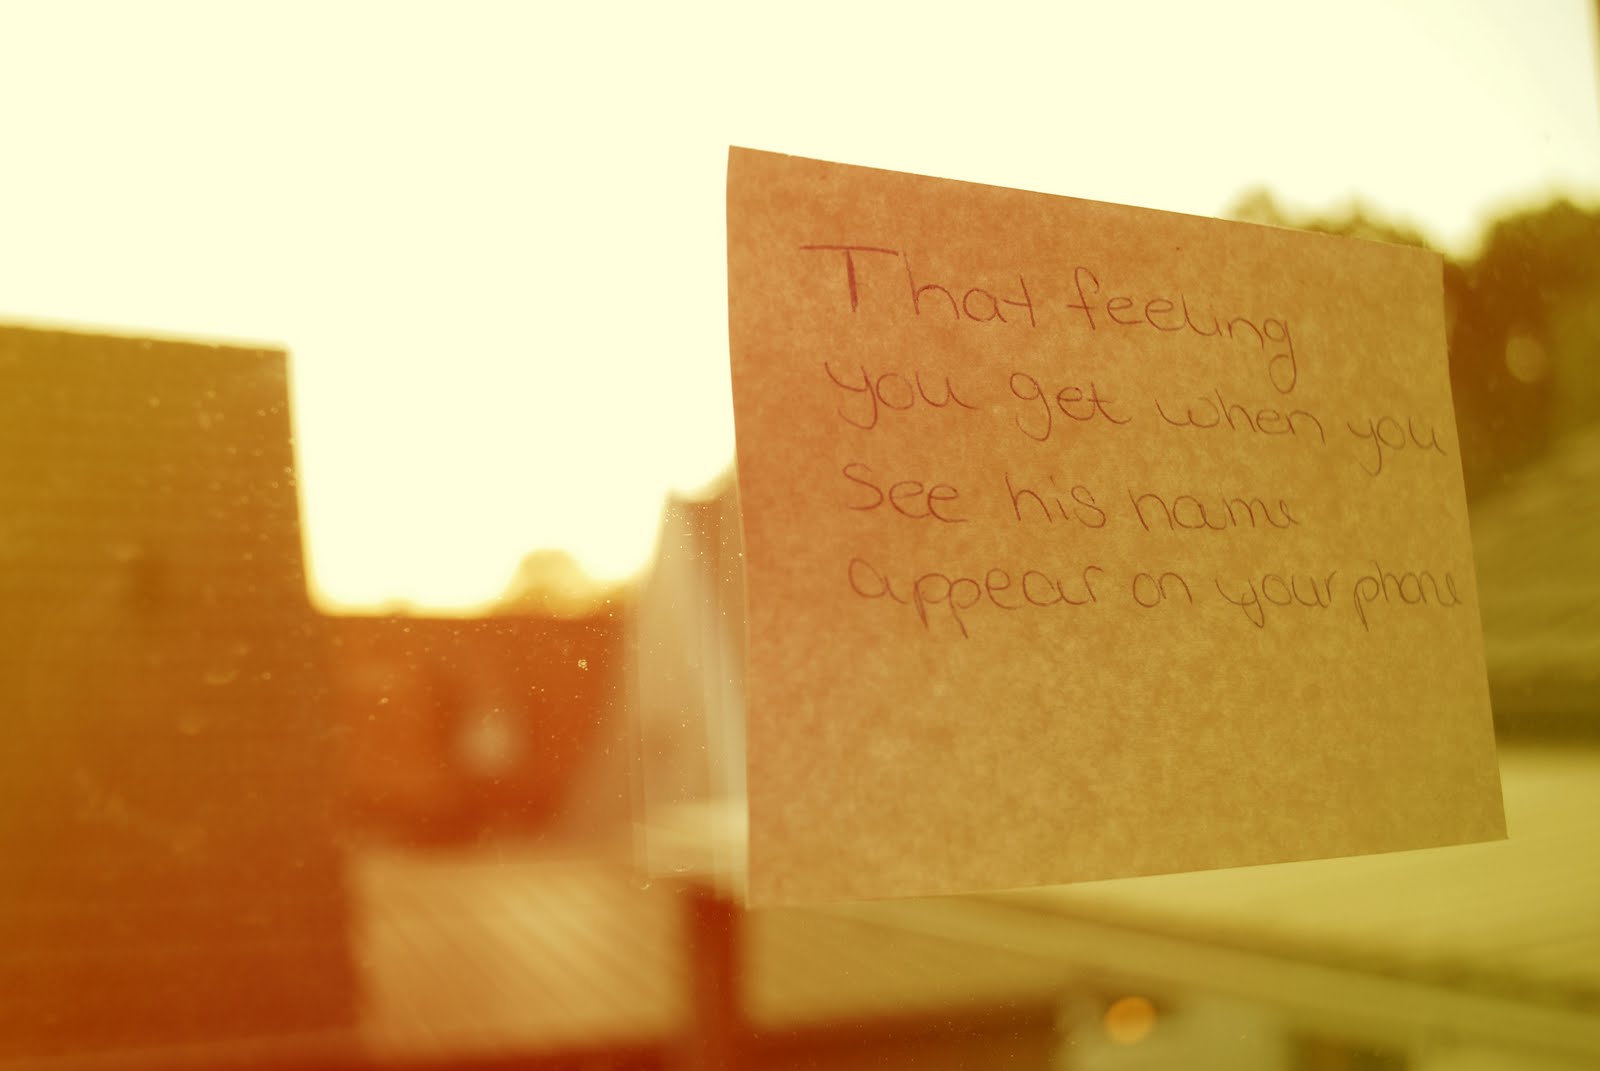 That feeling
you get when you
see his name
appear on your phone